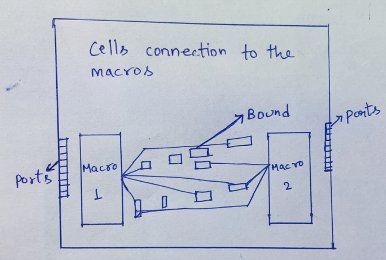 Cells connection to the
macros
Bound
Ports
Ports
Macro
1
Macro
2